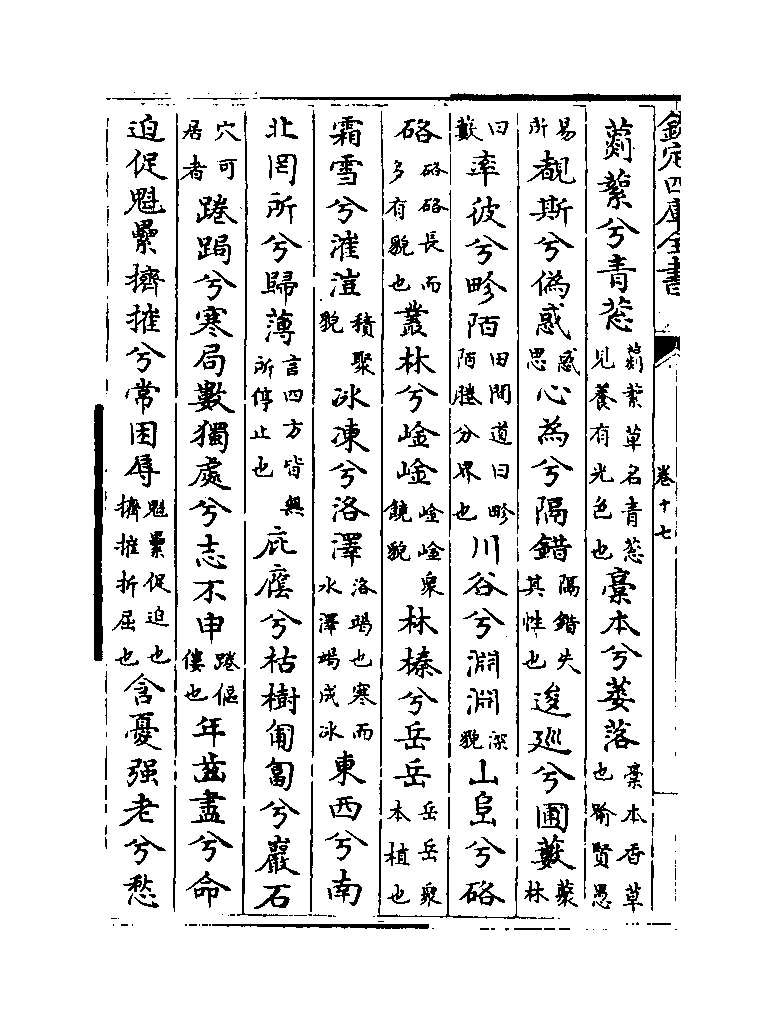 欽定四庫全書 卷十七
蘮蒘兮青葱蘮蒘草名青葱見養有光色也槀本兮萎落槀本香草也喻賢愚
易所覩斯兮偽惑惑思心為兮隔錯隔錯失其性也逡巡兮圃藪藂林
曰藪率彼兮畛陌田間道曰畛陌塍分界也川谷兮淵淵深貌山阜兮硌
硌硌硌長而多有貌也叢林兮崯崯崯崯衆饒貌林榛兮岳岳岳岳衆本植也
霜雪兮漼溰積聚貌冰凍兮洛澤洛竭也寒而水澤竭成冰東西兮南
北罔所兮歸薄言四方皆無所停止也庇廕兮枯樹匍匐兮巖石
穴可居者踡跼兮寒局數獨處兮志不申踡傴僂也年茲盡兮命
迫促魁纍擠摧兮常困辱魁纍促迫也擠摧折屈也含憂强老兮愁